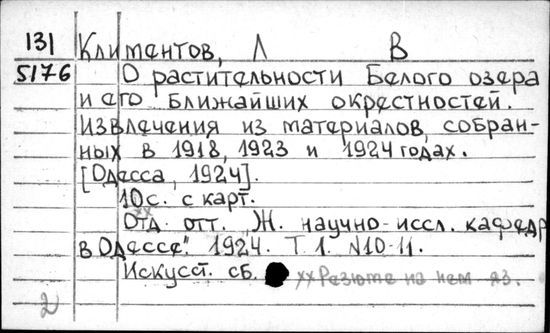 131 Климентов, Л В
5176 О растительности Белого озера
и его ближайших окрестностей.
Извлечения из материалов, собран-
ных в 1918, 1923 и 1924 годах.
[Одесса, 1924].
10 с. с карт.
xx
Отд. отт. „Ж. научно-иссл. кафедр
в Одессе". 1924. Т 1. N10-11.
Искусст. сб. xx Резюме на нем яз.
2